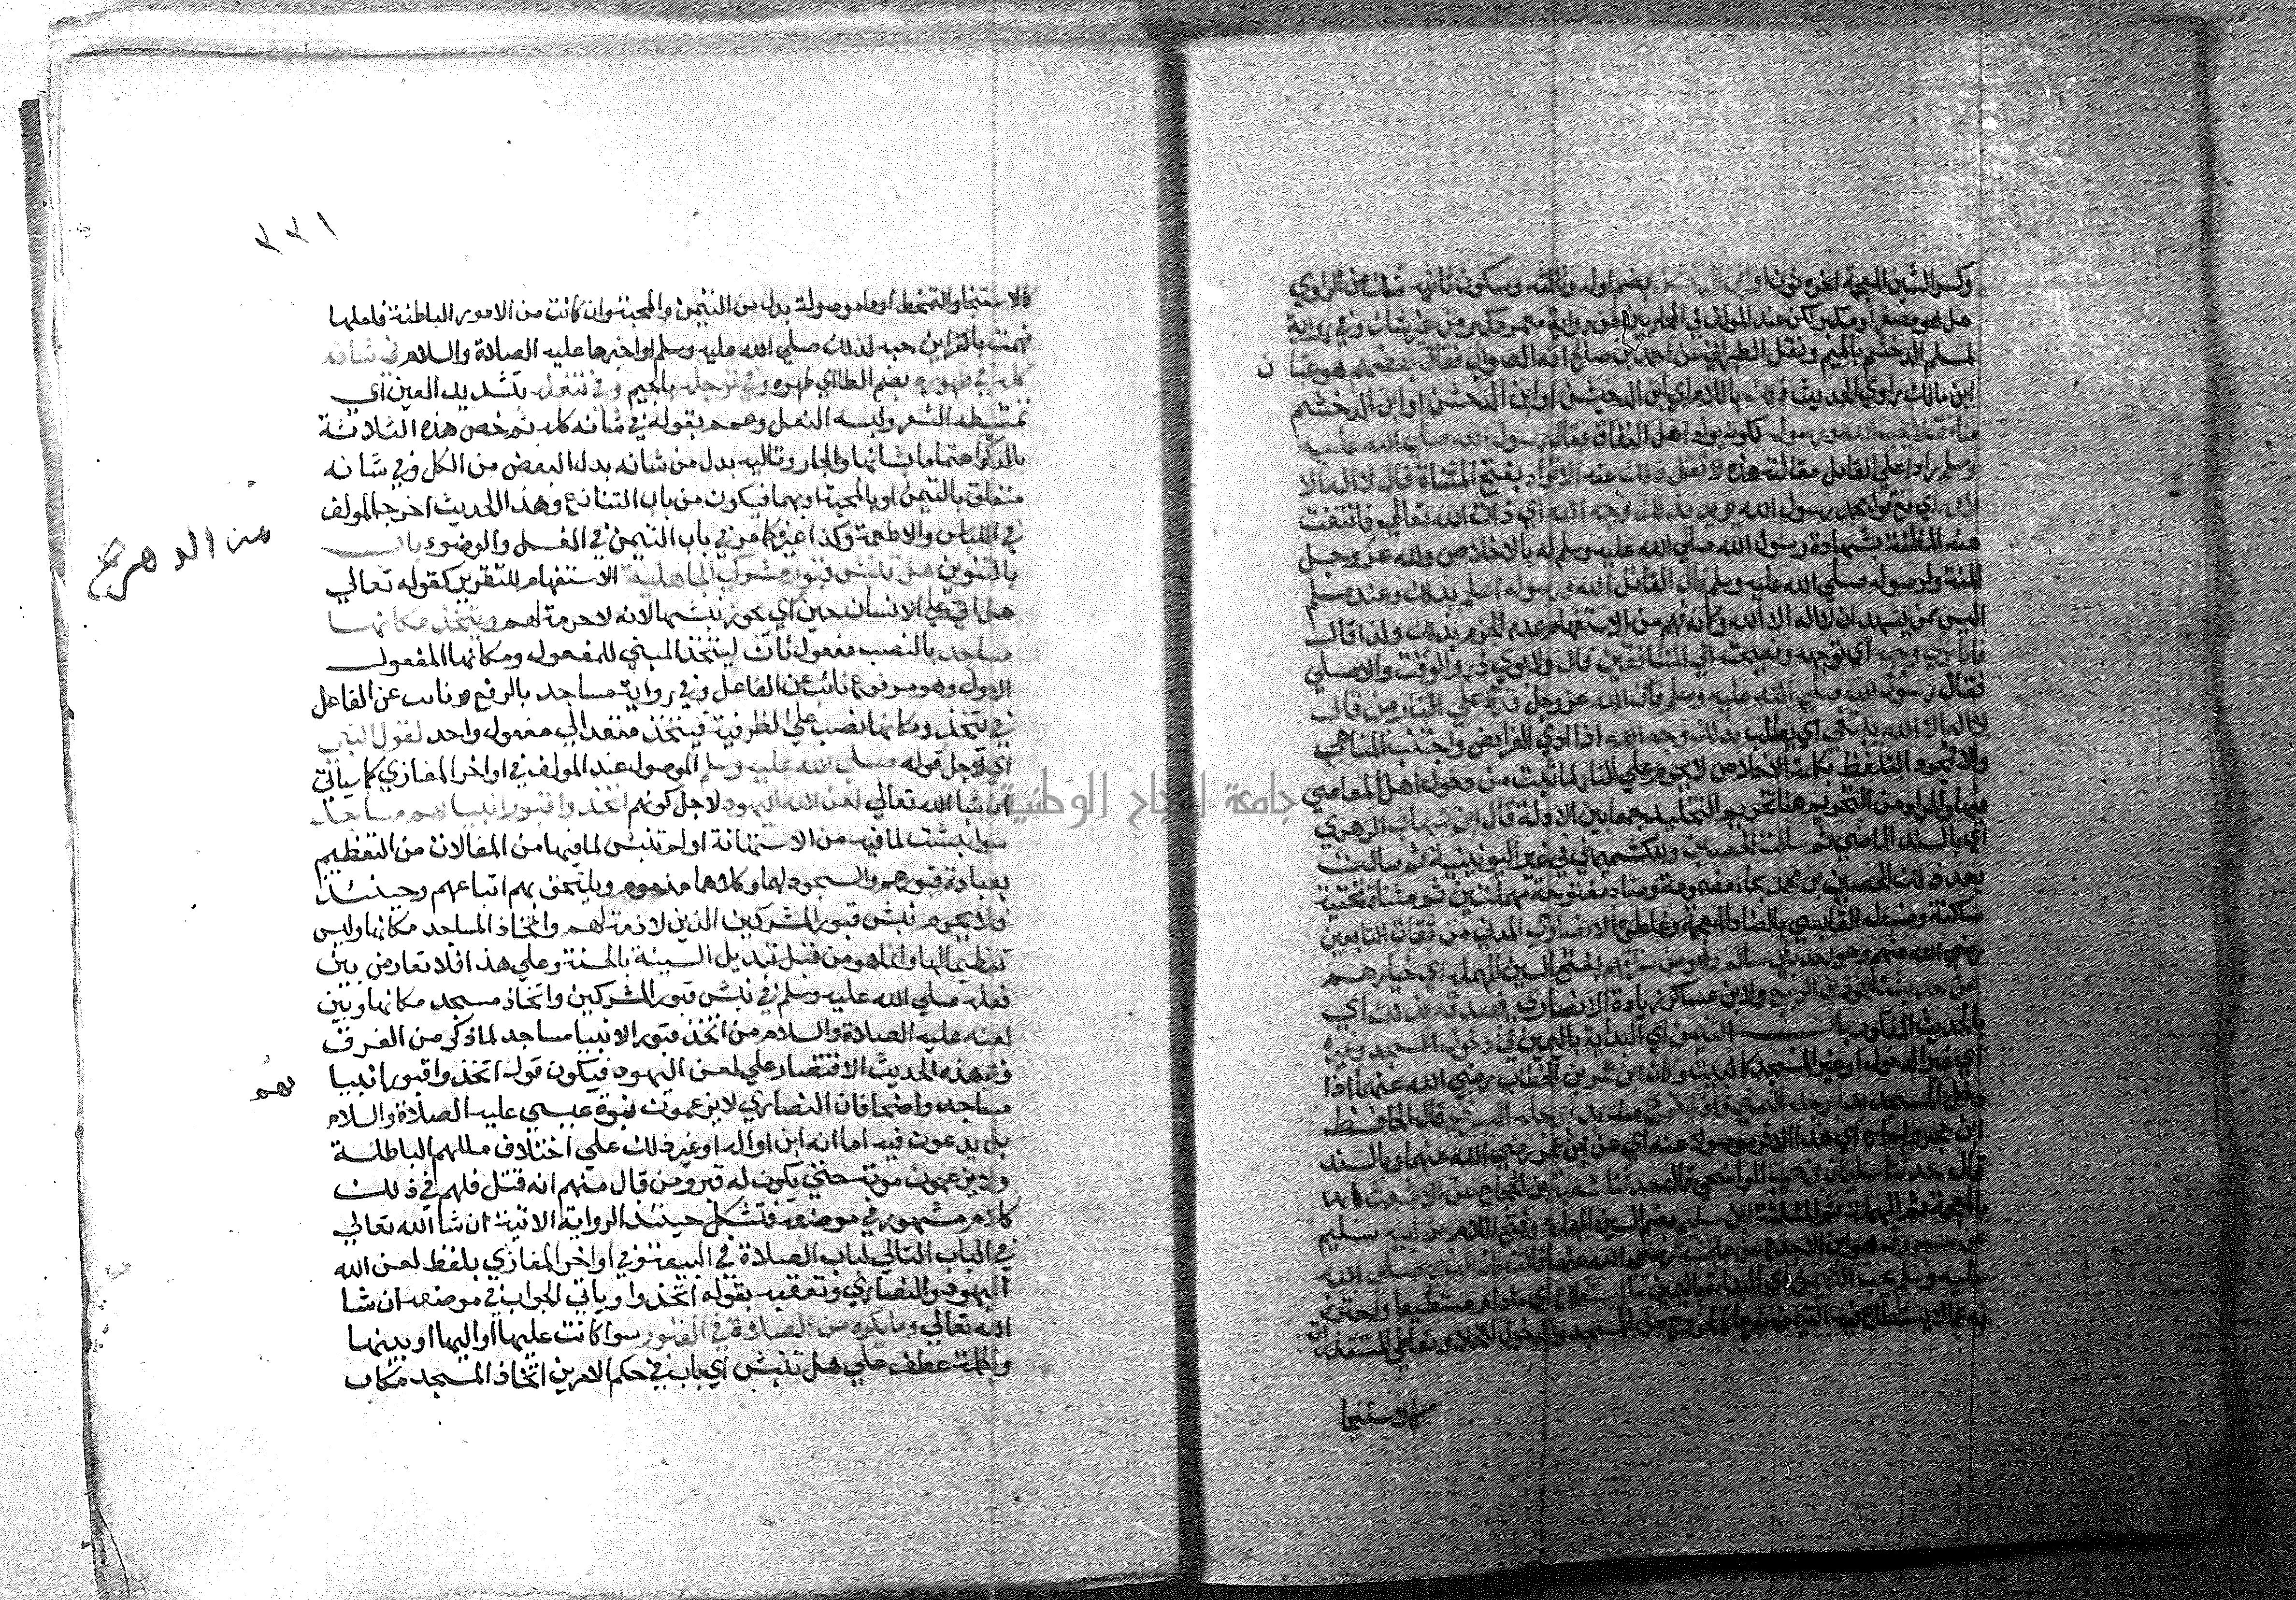 وكسر الشين المعجمة اخره نون او ابن الدخشن بضم اوله وثالثه وسكون ثانيه شك من الراوي
هل هو مصغر او مكبر لكن عند المولف في المحاربين من رواية معمر مكبر من غير شك وفي رواية
لمسلم الدخشم بالميم ونقل الطبراني عن احمد بن صالح انه الصواب فقال بعضهم هو عتبان
ابن مالك راوي الحديث ذلك باللام اي ابن الدخيشن او ابن الدخشن او ابن الدخشم
منافق لا يحب الله ورسوله لكونه يواد اهل النفاق فقال رسول الله صلي الله عليه
وسلم رادا علي القايل مقالته هذه لا تقل ذلك عنه الا تراه بفتح المثناة قال لا اله الا
الله اي مع قول محمد رسول الله يريد بذلك وجه الله اي ذات الله تعالي فانتفت
عنه المظنة بشهادة رسول الله صلي الله عليه وسلم له بالاخلاص ولله عز وجل
المنة ولرسوله صلي الله عليه وسلم قال القائل الله ورسوله اعلم بذلك وعند مسلم
اليس ممن يشهد ان لا اله الا الله وكانه فهم من الاستفهام عدم الجزم بذلك ولذا قال
فانا نري وجهه اي توجهه ونصيحته الي المنافقين قال ولابوي ذر والوقت والاصيلي
فقال رسول الله صلي الله عليه وسلم فان الله عز وجل قد حرم علي النار من قال
لا اله الا الله يبتغي اي يطلب بذلك وجه الله اذا ادي الفرايض واجتنب المناهي
والا فمجرد التلفظ بكلمة الاخلاص لا يحرم علي النار لما ثبت من دخول اهل المعاصي
فيها والمراد من التحريم هنا تحريم التخليد جمعا بين الادلة قال ابن شهاب الزهري
اي بالسند الماضي ثم سالت الحصين وللكشميهني في غير اليونينية ثم سالت
بعد ذلك الحصين بن محمد بحاء مضمومة وصاد مفتوحة مهملتين ثم مثناة تحتية
ساكنة وضبطه القابسي بالضاد المعجمة وغلطوه الانصاري المدني من ثقات التابعين
رضي الله عنهم وهو احد بني سالم وهو من سراتهم بفتح السين المهملة اي خيارهم
عن حديث محمود بن الربيع ولابن عساكر زيادة الانصاري فصدقه بذلك اي
بالحديث المذكور باب التيمن اي البداية باليمين في دخول المسجد وغيره
اي غير الدخول او غير المسجد كالبيت وكان ابن عمر بن الخطاب رضي الله عنهما اذا
دخل المسجد يبدا برجله اليمني فاذا خرج منه بدا برجله اليسري قال الحافظ
ابن حجر ولم اره اي هذا الاثر موصولا عنه اي عن ابن عمر رضي الله عنهما وبالسند
قال حدثنا سليمان بن حرب الواشحي قال حدثنا شعبة بن الحجاج عن الاشعث
بالمعجمة ثم المهملة ثم المثلثة ابن سليم بضم السين المهملة وفتح اللام عن ابيه سليم
عن مسروق هو ابن الاجدع عن عائشة رضي الله عنها قالت كان النبي صلي الله
عليه وسلم يحب التيمن اي البداءة باليمين ما استطاع اي مادام مستطيعا واحترز
به عما لا يستطاع فيه التيمن شرعا كالخروج من المسجد والدخول للخلاء وتعاطي المستقذرات
كالاستنجا
٣٣١
كالاستنجا والتمخط او ما موصولة بدل من التيمن والمحبة وان كانت من الامور الباطنة فلعلها
فهمت بالقراين حبه لذلك صلي الله عليه وسلم او اخبرها عليه الصلاة والسلام في شانه
كله في طهوره بضم الطا اي طهره وفي ترجله بالجيم وفي تنعله بتشديد العين اي
تمشيطه الشعر ولبسه النعل وعمم بقوله في شانه كله ثم خص هذه الثلاثة
بالذكر اهتماما بشانها والجار وتاليه بدل من شانه بدل البعض من الكل وفي شانه
متعلق بالتيمن او بالمحبة او بهما فيكون من باب التنازع وهذا الحديث اخرجه المولف
في اللباس والاطعمة وكذا غيره كما مر في باب التيمن في الغسل والوضوء باب
بالتنوين هل تنبش قبور مشركي الجاهلية الاستفهام للتقرير كقوله تعالي
هل اتي علي الانسان حين اي يجوز نبشها لانه لا حرمة لهم ويتخذ مكانها
مساجد بالنصب مفعول ثان ليتخذ المبني للمفعول ومكانها المفعول
الاول وهو مرفوع نائب عن الفاعل وفي رواية مساجد بالرفع نائب عن الفاعل
في يتخذ ومكانها نصب علي الظرفية فيتخذ متعد الي مفعول واحد لقول النبي
اي لاجل قوله صلي الله عليه وسلم الموصول عند المولف في اواخر المغازي كما سياتي
ان شا الله تعالي لعن الله اليهود لاجل كونهم اتخذوا قبور انبيائهم مساجد
سوا نبشت لما فيه من الاستهانة او لم تنبش لما فيها من المغالات من التعظيم
بعبادة قبورهم والسجود لها وكلاهما مذموم ويلتحق بهم اتباعهم وحينئذ
فلا يحرم نبش قبور المشركين الذين لا ذمة لهم واتخاذ المساجد مكانها وليس
تعظيما لها وانما هو من قبل تبديل السيئة بالحسنة وعلي هذا فلا تعارض بين
فعله صلي الله عليه وسلم في نبش قبور المشركين واتخاذ مسجد مكانها وبين
لعنه عليه الصلاة والسلام من اتخذ قبور الانبيا مساجد لما ذكر من الفرق
وفي هذه الحديث الاقتصار علي لعن اليهود فيكون قوله اتخذوا قبور انبيا
هم
مساجد واضحا فان النصاري لا يزعمون نبوة عيسي عليه الصلاة والسلام
بل يدعون فيه اما انه ابن او اله او غير ذلك علي اختلاف مللهم الباطلة
ولا يزعمون موته حتي يكون له قبر ومن قال منهم انه قتل فلهم في ذلك
كلام مشهور في موضعه فتشكل حينئذ الرواية الاتية ان شا الله تعالي
في الباب التالي لباب الصلاة في البيعة وفي اواخر المغازي بلفظ لعن الله
اليهود والنصاري وتعقبه بقوله اتخذوا وياتي الجواب في موضعه ان شا
الله تعالي وما يكره من الصلاة في القبور سوا كانت عليها او اليها او بينها
والجملة عطف علي هل تنبش اي باب في حكم الامرين اتخاذ المسجد مكان
جامعة النجاح الوطنية